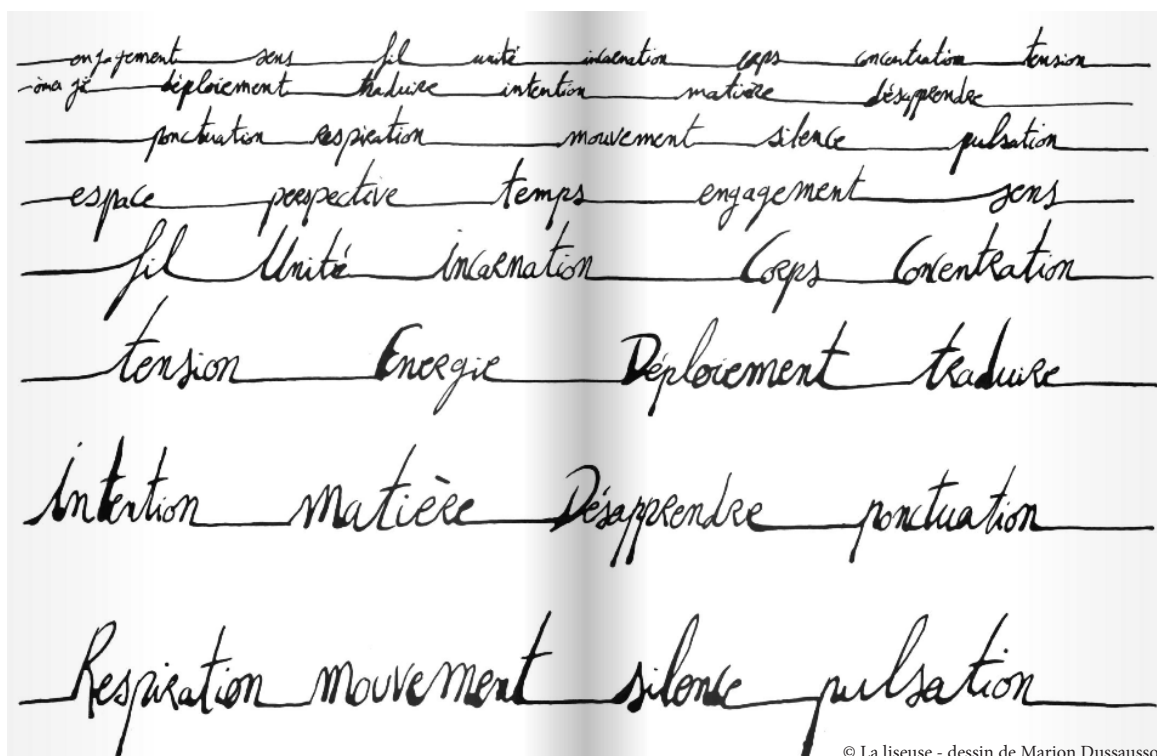 engagement sens fil unité incarnation corps concentration tension
déploiement traduire intention matière désapprendre
ponctuation respiration mouvement silence pulsation
espace perspective temps engagement sens
fil Unité incarnation Corps Concentration
tension Energie Déploiement traduire
intention matière Désapprendre ponctuation
Respiration mouvement silence pulsation
© La liseuse - dessin de Marion Dussausso